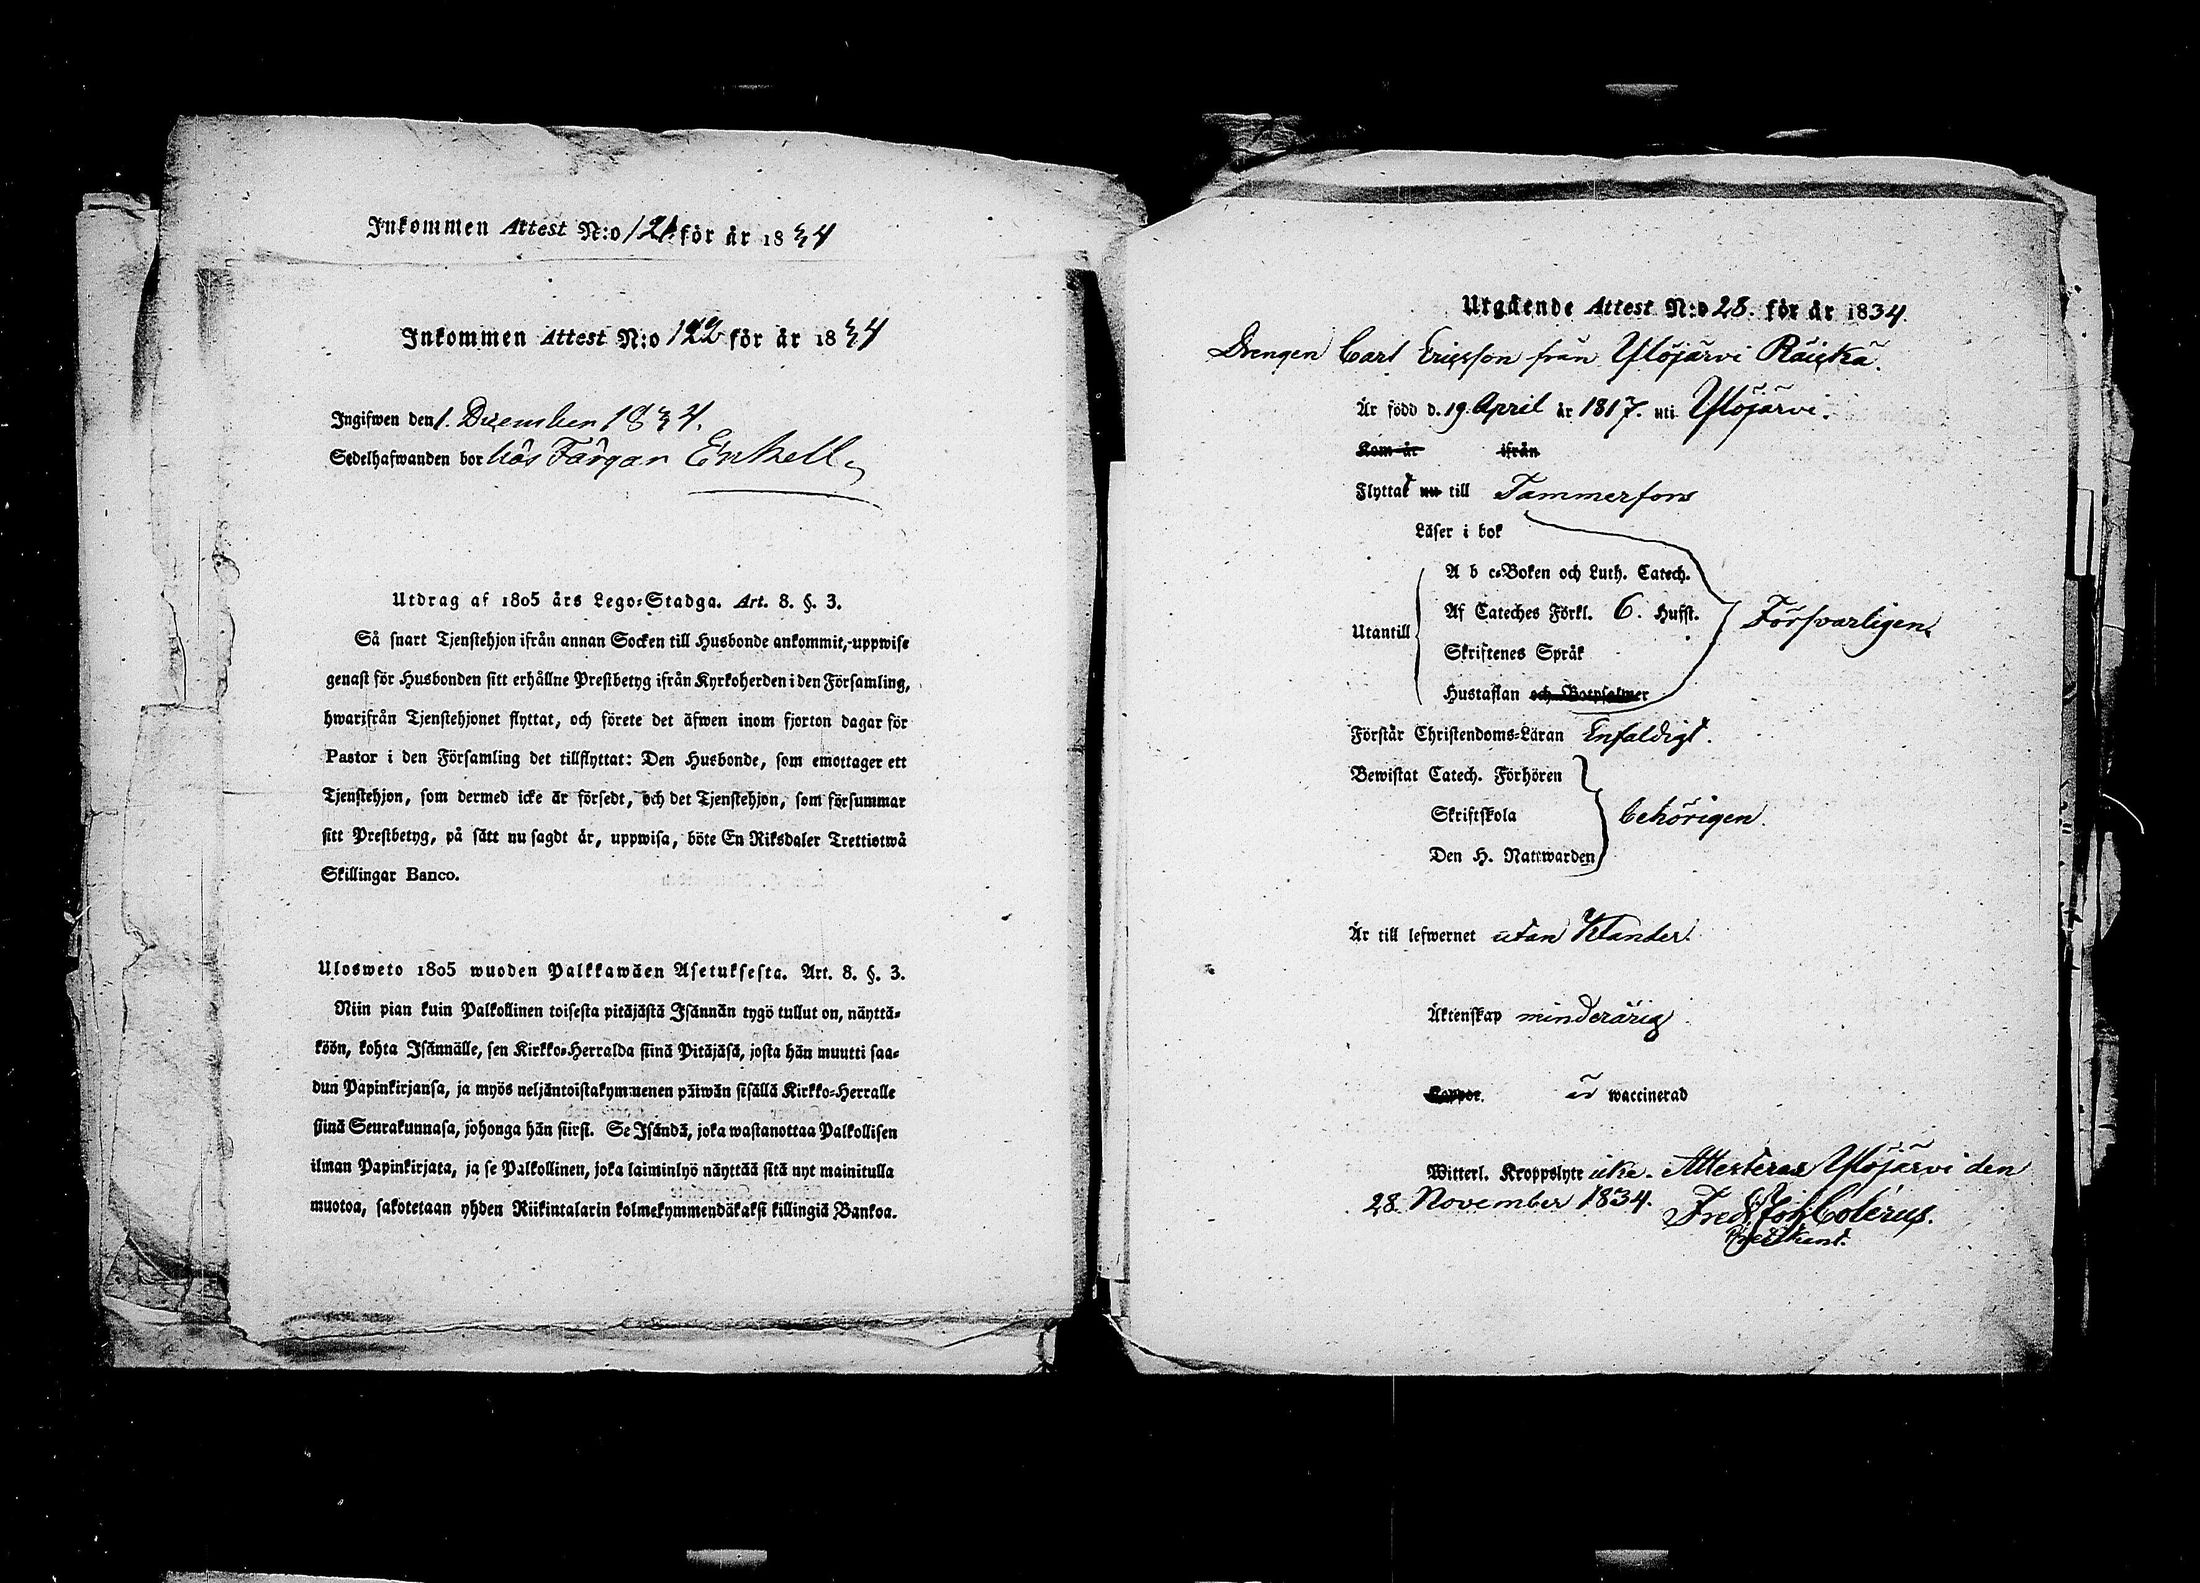 Inkommen Attest N:o 121 för år 1834
Inkommen Attest N:o 122 för år 1834
Ingifwen den 1. December 1834.
Sedelhafwanden bor hos Färgar Enkell
Utdrag af 1805 års Lego-Stadga. Art. 8. §. 3.
Så snart Tjenstehjon ifrån annan Socken till Husbonde ankommit, uppwise
genast för Husbonden sitt erhållne Prestbetyg ifrån Kyrkoherden i den Församling,
hwarifrån Tjenstehjonet flyttat, och förete det äfwen inom fjorton dagar för
Pastor i den Församling det tillflyttat: Den Husbonde, som emottager ett
Tjenstehjon, som dermed icke är försedt, och det Tjenstehjon, som försummar
sitt Prestbetyg, på sätt nu sagdt är, uppwisa, böte En Riksdaler Trettiotwå
Skillingar Banco.
Ulosweto 1805 wuoden Palkkawäen Asetuksesta. Art. 8. §. 3.
Niin pian kuin Palkollinen toisesta pitäjästä Isännän tygö tullut on, näyttä-
köön, kohta Isännälle, sen Kirkko-Herralda siinä Pitäjäsä, josta hän muutti saa-
dun Papinkirjansa, ja myös neljäntoistakymmenen päiwän sisällä Kirkko-Herralle
siinä Seurakunnasa, johonga hän siirsi. Se Isändä, joka wastanottaa Palkollisen
ilman Papinkirjata, ja se Palkollinen, joka laiminlyö näyttää sitä nyt mainitulla
muotoa, sakotetaan yhden Riikintalarin kolmekymmendäkaksi killingiä Bankoa.
Utgående Attest N:o 28. för år 1834.
Drengen Carl Ericsson från Ylöjärvi Räickä.
Är född d. 19. April år 1817. uti Ylöjärvi.
Kom år ifrån
Flyttat nu till Tammerfors
Läser i bok
A b c-Boken och Luth. Catech.
Af Cateches Förkl. 6. Hufst.
Utantill Försvarligen
Skriftenes Språk
Hustaflan och Botpsalmer
Förstår Christendoms-Läran Enfaldigt.
Bewistat Catech. Förhören
Skriftskola behörigen.
Den H. Nattwarden
Är till lefwernet utan Klander.
Äktenskap minderårig
Koppor. är waccinerad
Witterl. Kroppslyte icke. Attesteras Ylöjärvi den
28. November 1834. Fred. Joh. Colerus.